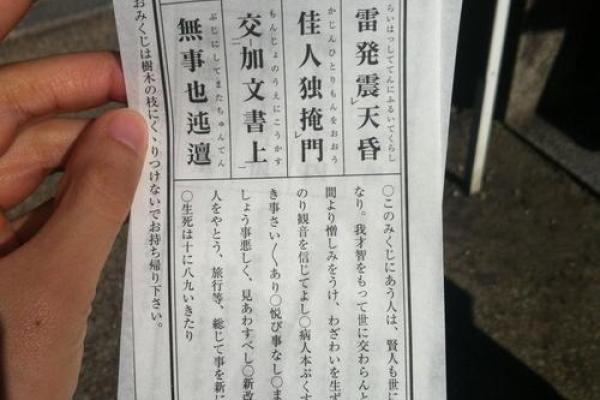 らいはっしててんにふるいてくらし
雷発震レ天昏
かじんひとりもんをおおう
佳人独掩レ門
もんじょのうえにこうかす
交二加文書上一
ぶじにしてまたちゅんてん
無事也迍邅
〇このみくじにあう人は、賢人も世に
なり。我才智をもって世に交わらんと
間より憎しみをうけ、わざわいを生ず
のり観音を信じてよし〇病人本ぷくす
き事さい〱あり〇悦び事なし〇ま
しょう事悪しく、見あわすべし〇新改
人をやとう、旅行等、総じて事を新に
〇生死は十に八九いきたり
おみくじは樹木の枝にくゝりつけないでお持ち帰り下さい。